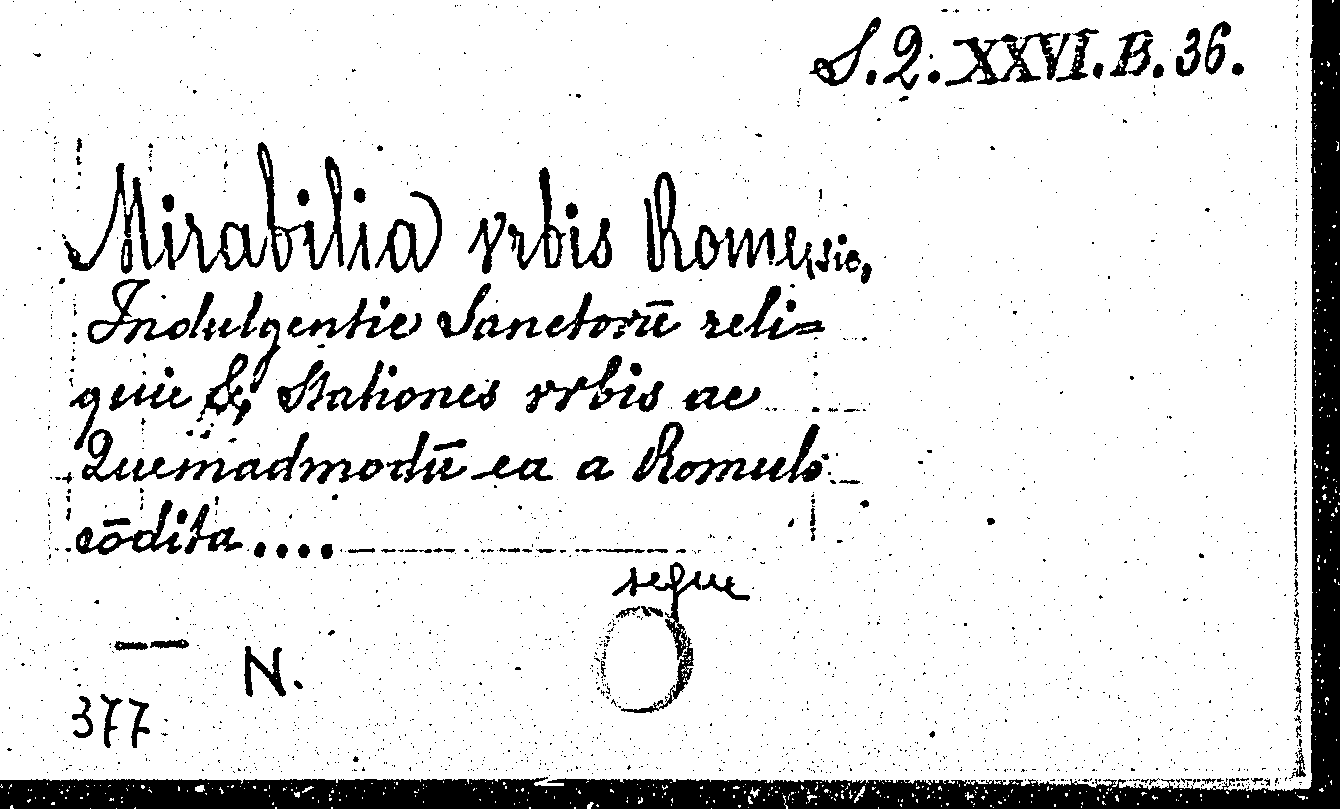 S.Q. XXVI.B.36.
Mirabilia vrbis Rome, sic,
Indulgentie Sanctorū reli=
quie & Stationes vrbis ac
Quemadmodū ea a Romulo
cōdita....
segue
— N.
377